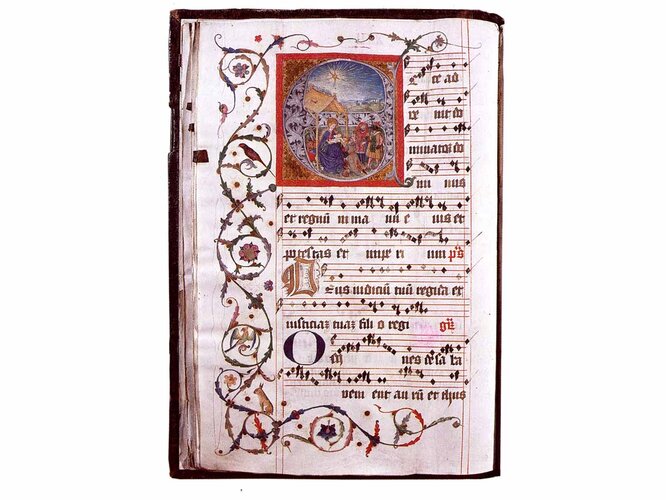 ce ad
ve nit do
minator do
mi nus
et regnū in ma nu e ius et
potestas et impe ri um p̄s
Deus iudiciū tuū regi da et
iusticiaꝫ tuaꝫ fili o regi gr̄
O m nes de sa ba
veni ent au rū et thus